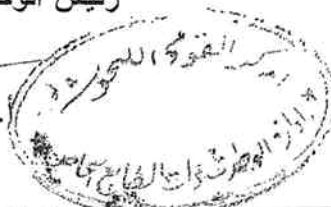 رئيس الوحدة
المركز القومى للبحوث
إدارة الوحدات ذات الطابع الخاص